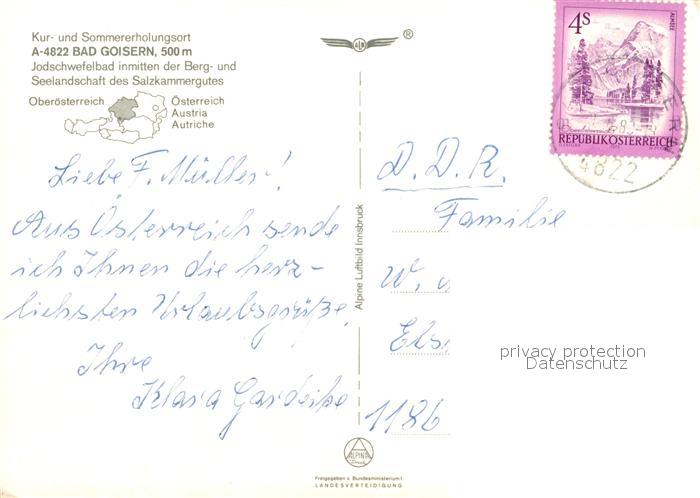 Kur- und Sommererholungsort
A-4822 BAD GOISERN, 500 m
Jodschwefelbad inmitten der Berg- und
Seelandschaft des Salzkammergutes
Oberösterreich
Österreich
Austria
Autriche
Liebe F. Müller!
Aus Österreich sende
ich Ihnen die herz-
lichsten Urlaubsgrüße.
Ihre
Klara
ALO
®
Alpine Luftbild Innsbruck
ALPINA
Druck
Freigegeben v. Bundesministerium f.
LANDESVERTEIDIGUNG
4S
ALMSEE
REPUBLIK ÖSTERREICH
4822
D. D. R.
Familie
W.
Els
1186
privacy protection
Datenschutz